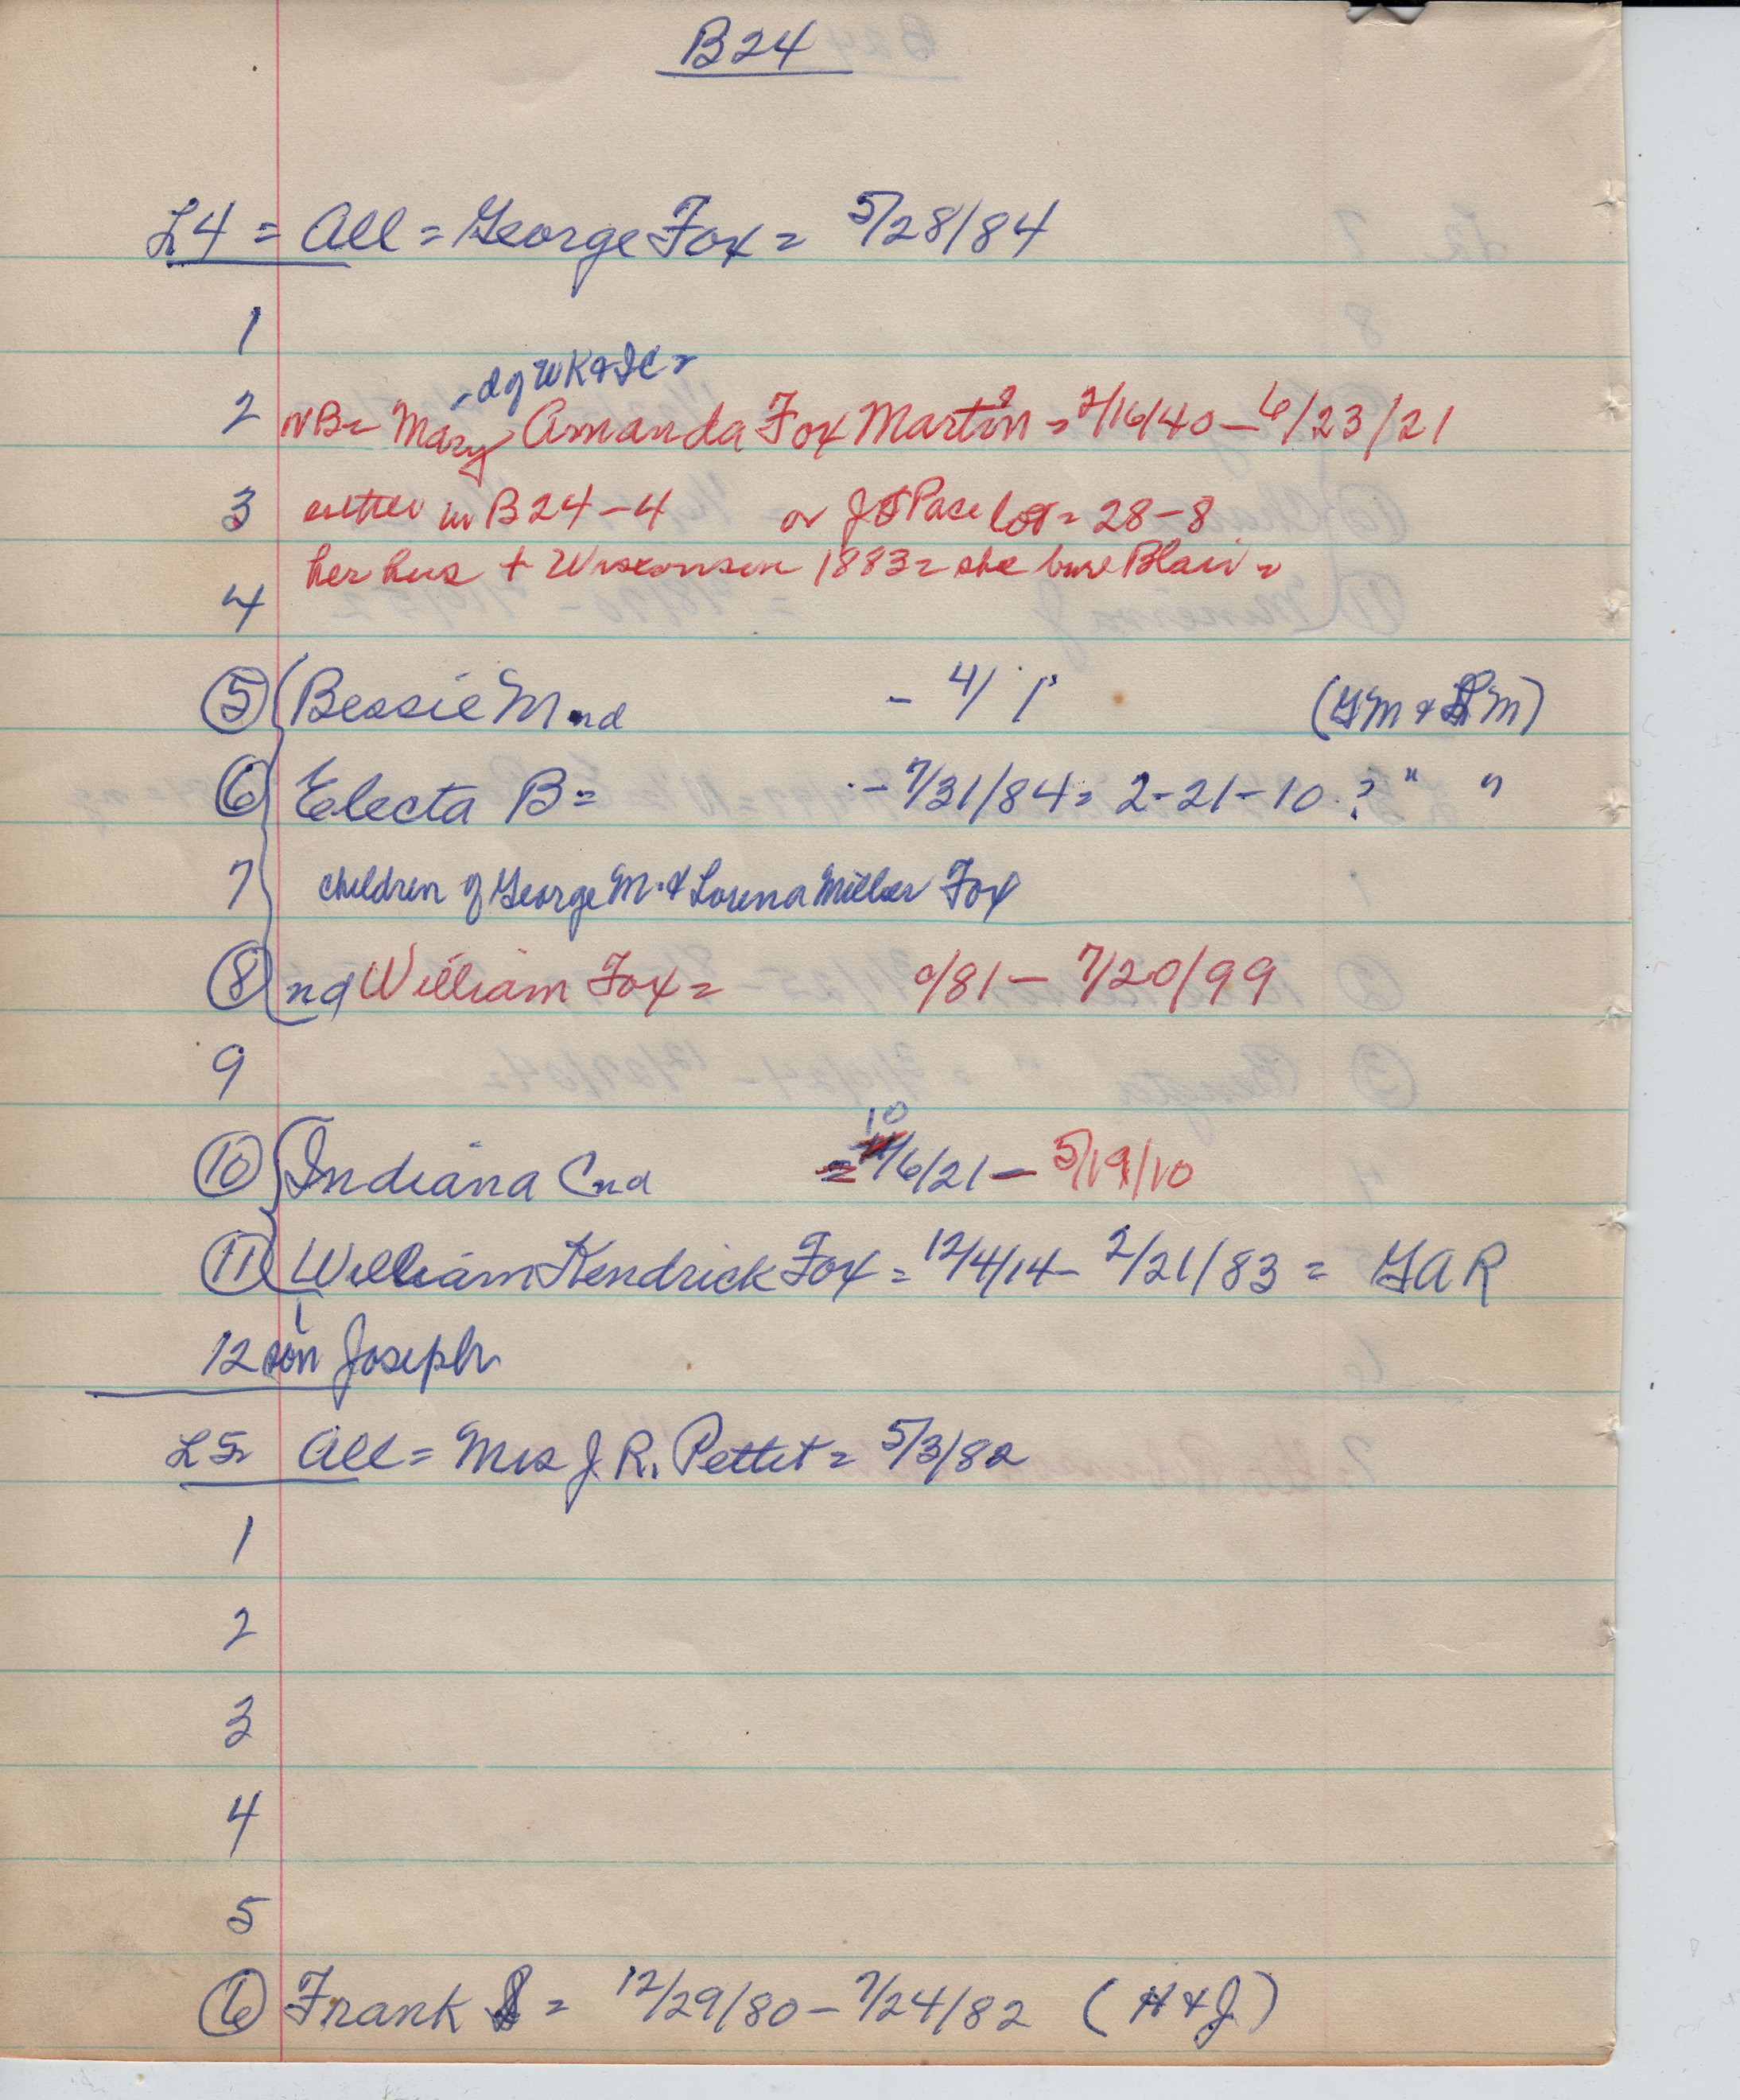 B24
L4 = All = George Fox = 5/28/84
1
- d of WK & IC =
2 NB = Mary Amanda Fox Martin = 2/16/40 - 6/23/21
3 either in B24-4 or J Pace lot = 28-8
her hus + Wisconsin 1883 = she bur Blair =
4
5 Bessie M nd - 4/ 1 (GM & LM)
6 Electa B = - 7/31/84 = 2-21-10 ? " "
7 children of George M. & Lorena Miller Fox
8 nd William Fox = c/81 - 7/20/99
9
10 Indiana C nd = 10/6/21 - 5/19/10
11 William Kendrick Fox = 12/4/14 - 2/21/83 = GAR
12 son Joseph
L5 = All = Mrs J. R. Pettit = 5/3/82
1
2
3
4
5
6 Frank = 12/29/80 - 7/24/82 (H & J)